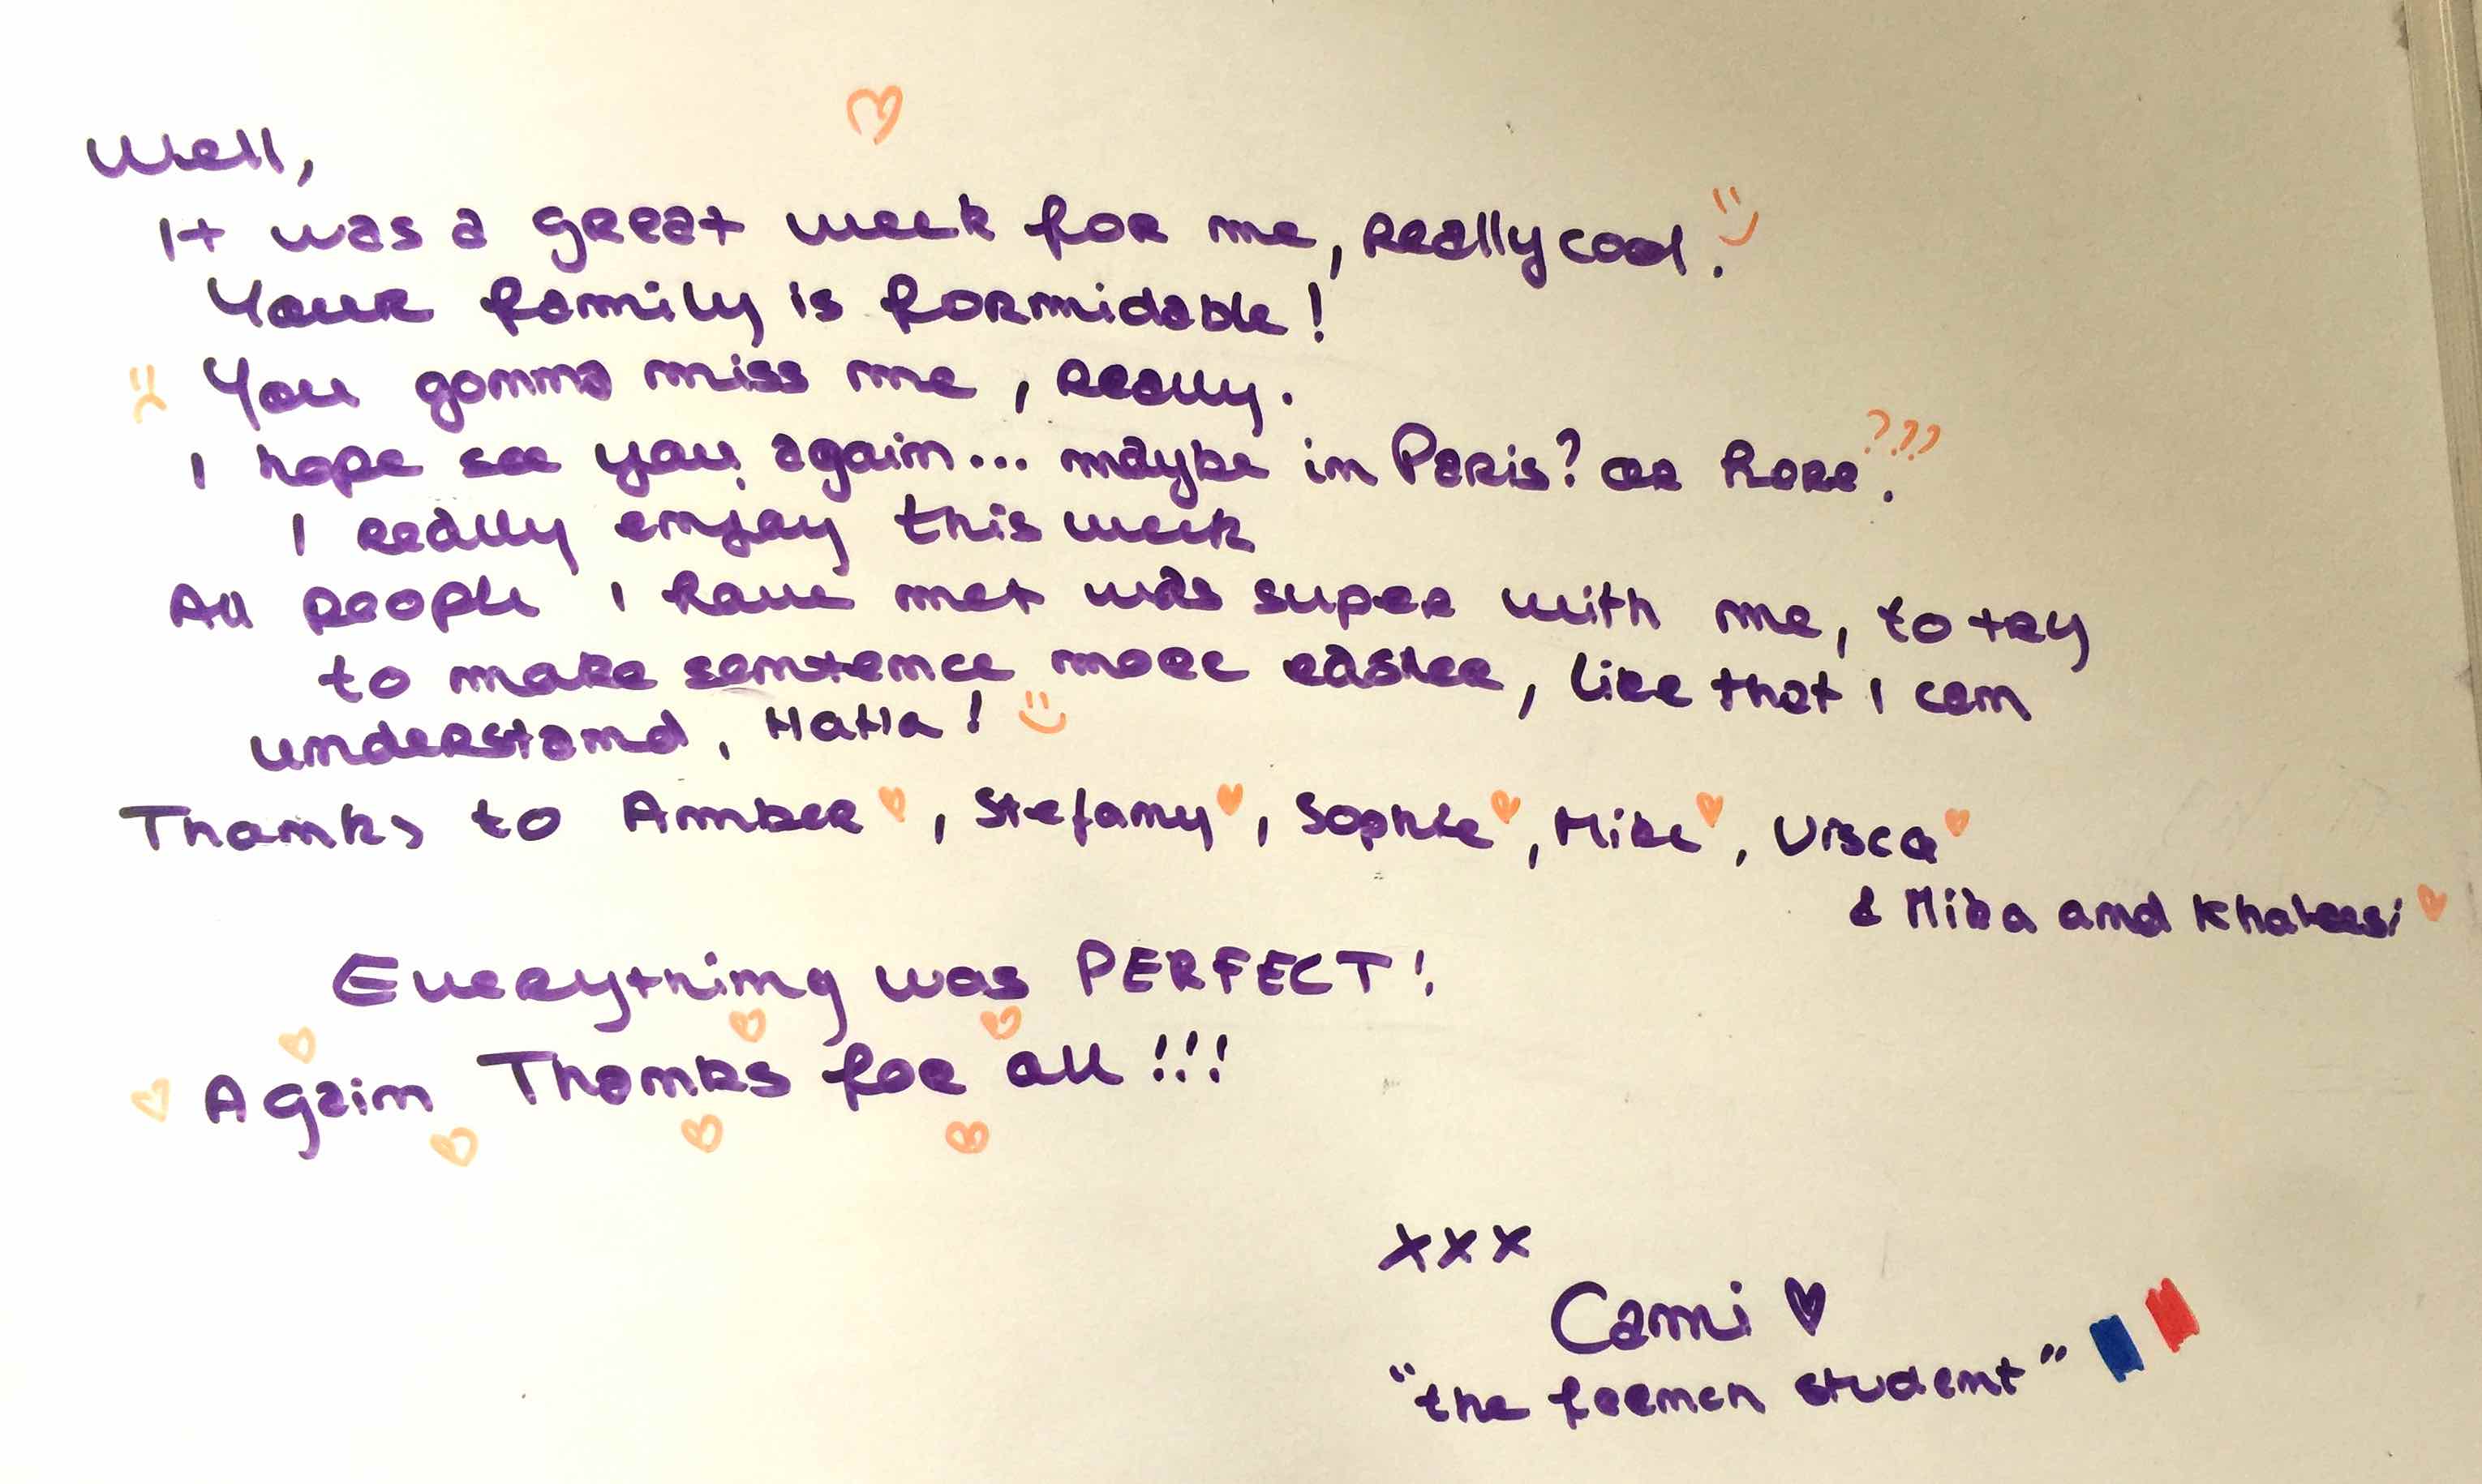 Well,
It was a great week for me, really cool.
Your family is formidable!
You gonna miss me, really.
I hope see you again... maybe in Paris? or here? ???
I really enjoy this week
All people I have met was super with me, to try
to make sentence more easier, like that I can
understand, HaHa!
Thanks to Amber, Stefany, Sophie, Mike, Visca
& Mika and Khaleesi
Everything was PERFECT!
Again Thanks for all!!!
xxx
Cami
"the french student"